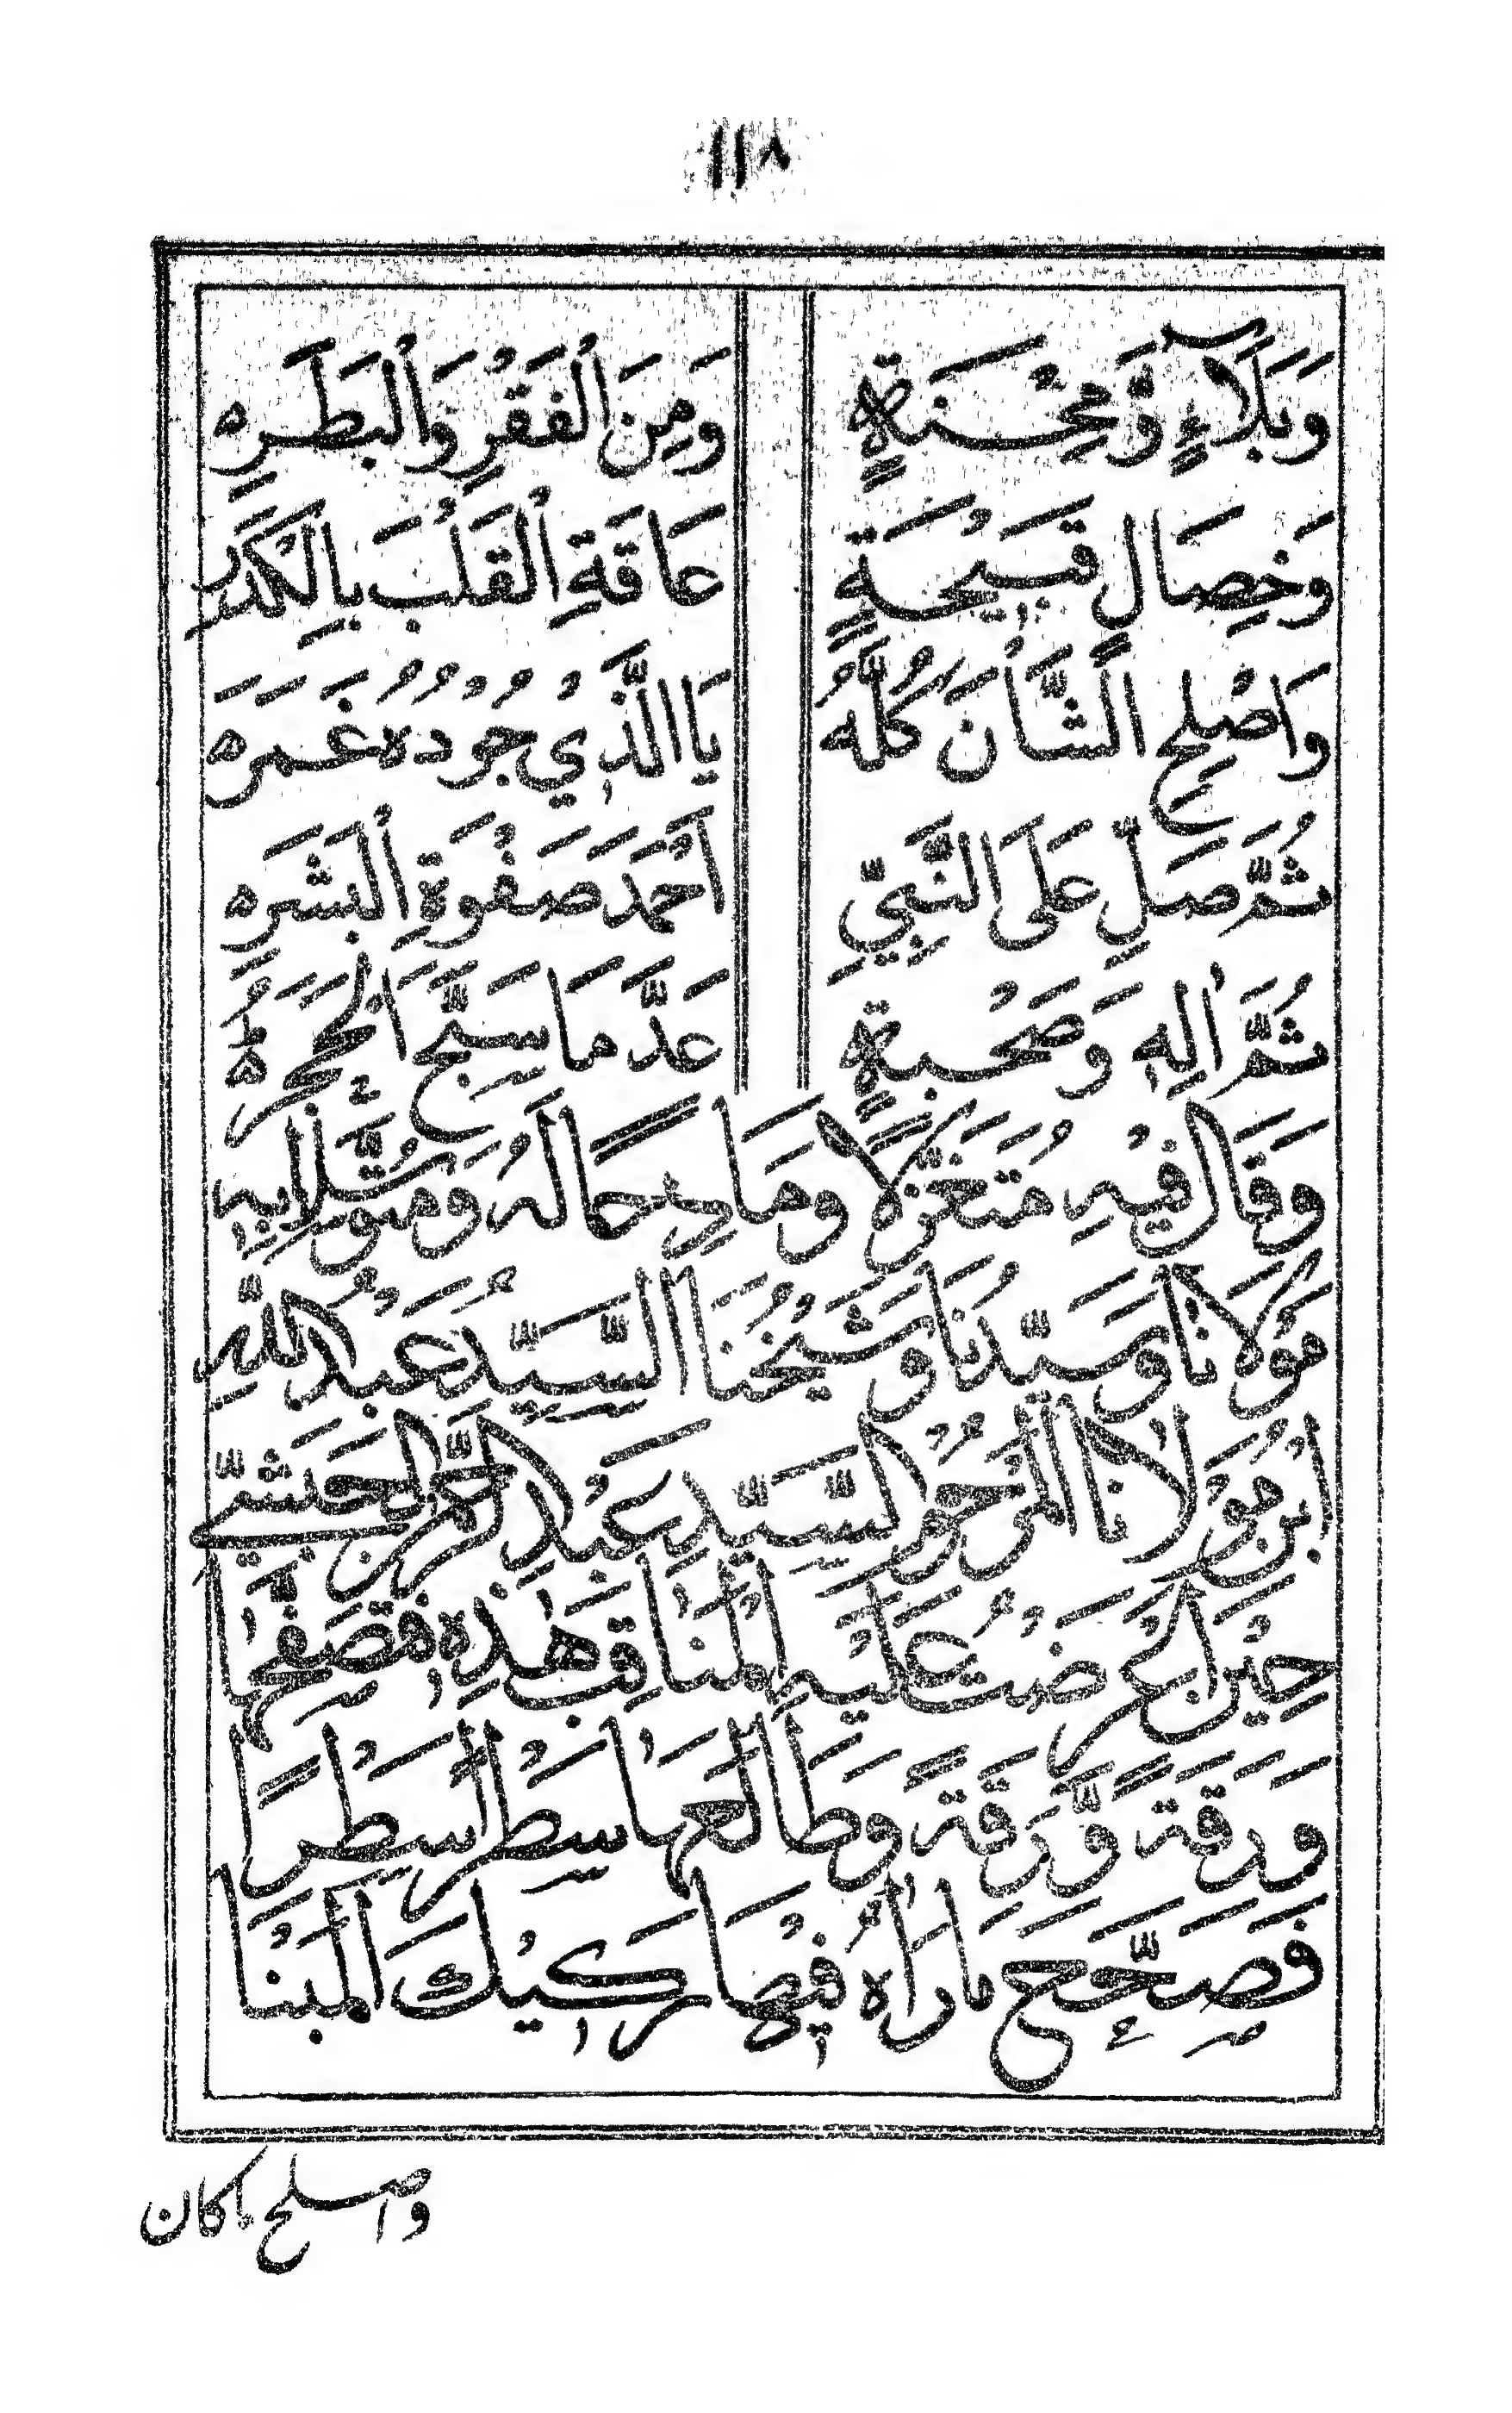 ١١٨
وَبَلَآءٍ وَّمِحْنَةٍ وَمِنَ الْفَقْرِ وَالْبَطَرِه
وَخِصَالٍ قَبِيْحَةٍ عَاقَةِ الْقَلْبَ بِالْكَدَرِ
وَاَصْلِحِ الشَّأْنَ كُلَّهُ يَا الَّذِيْ جُوْدُهُ غَمَرَه
ثُمَّ صَلِّ عَلَى النَّبِيِّ اَحْمَدَ صَفْوَةِ الْبَشَرِه
ثُمَّ اٰلِهٖ وَصَحْبَةٍ عَدَّ مَا سَبَّحَ الْحَجَرُه
وَقَالَ فِيْهِ مُتَغَزِّلًا وَمَادِحًا لَهُ وَمُتَوَسِّلًا بِهٖ
مَوْلَانَا وَسَيِّدُنَا وَشَيْخُنَا السَّيِّدُ عَبْدُ اللّٰهِ
ابْنُ مَوْلَانَا الْمَرْحُوْمِ السَّيِّدِ عَبْدِ الرَّحْمٰنِ الْجَحَشِيّ
حِيْنَ اَعْرَضْتُ عَلَيْهِ الْمَنَاقِبَ هٰذِهٖ فَتَصَفَّحَهَا
وَرَقَةً وَّرَقَةً وَطَالَعَهَا سَطْرًا سَطْرًا
فَصَحَّحَ مَا رَاٰهُ فِيْهَا رَكِيْكَ الْمَبْنَا
واصلح ما كان